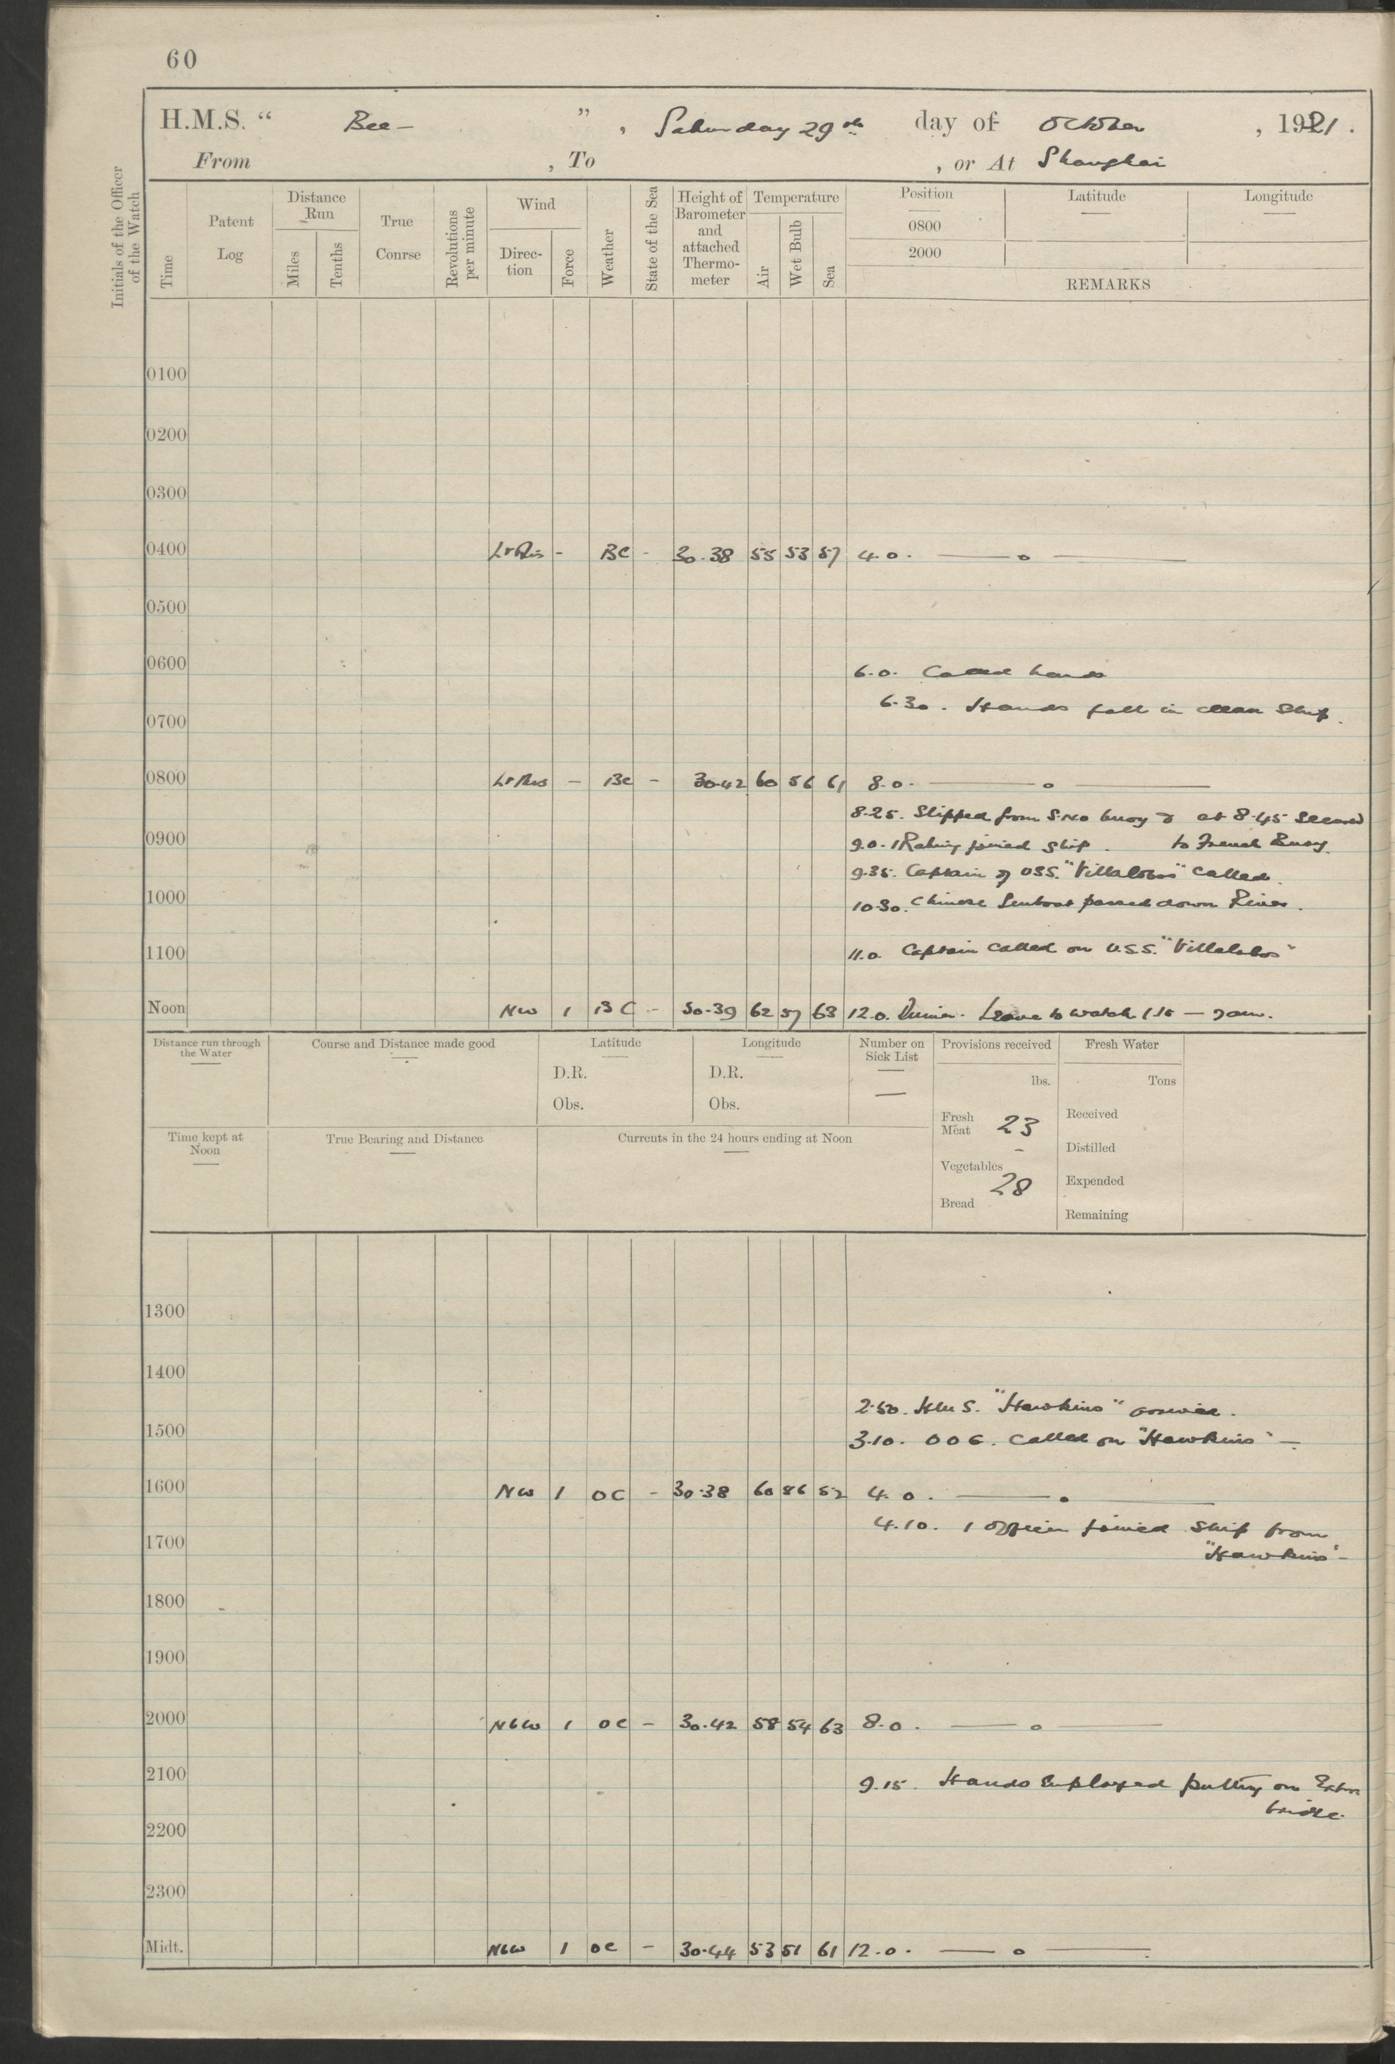 60
H.M.S. " Bee - " , Saturday 29th day of October , 1921 .
From , To , or At Shanghai
Initials of the Officer of the Watch
Time
Patent Log
Distance Run
Miles
Tenths
True Course
Revolutions per minute
Wind
Direc-tion
Force
Weather
State of the Sea
Height of Barometer and attached Thermo-meter
Temperature
Air
Wet Bulb
Sea
Position
0800
2000
Latitude
Longitude
REMARKS
0100
0200
0300
0400 Lt Airs - BC - 30.38 55 53 57 4.0. — o —
0500
0600
6.0. Called hands
6.30. Hands fall in clean Ship.
0700
0800 Lt Airs - BC - 30.42 60 56 61 8.0. — o —
8.25. Slipped from SNO buoy & at 8.45 Secured
0900
9.0. 1 Rating joined Ship. to French Buoy.
9.35. Captain of USS. "Villalobos" called.
1000
10.30. Chinese Gunboat passed down River.
1100 11.0 Captain called on U.S.S. "Villalobos"
Noon NW 1 BC - 30.39 62 57 63 12.0. Dinner. Leave to watch 1.15 — 7am.
Distance run through the Water
Course and Distance made good
Latitude
D.R.
Obs.
Longitude
D.R.
Obs.
Number on Sick List
—
Provisions received
lbs.
Fresh Meat 23
Vegetables -
Bread 28
Fresh Water
Tons
Received
Distilled
Expended
Remaining
Time kept at Noon
True Bearing and Distance
Currents in the 24 hours ending at Noon
1300
1400
2.50. H.M.S. "Hawkins" arrived.
1500
3.10. OOG. called on "Hawkins" —
1600 NW 1 OC - 30.38 60 56 52 4.0. — o —
4.10. 1 Officer joined Ship from
1700
"Hawkins" -
1800
1900
2000 NbW 1 OC - 30.42 58 54 63 8.0. — o —
2100 9.15. Hands Employed putting on Extra
bridle.
2200
2300
Midt. NbW 1 OC - 30.44 53 51 61 12.0. — o —